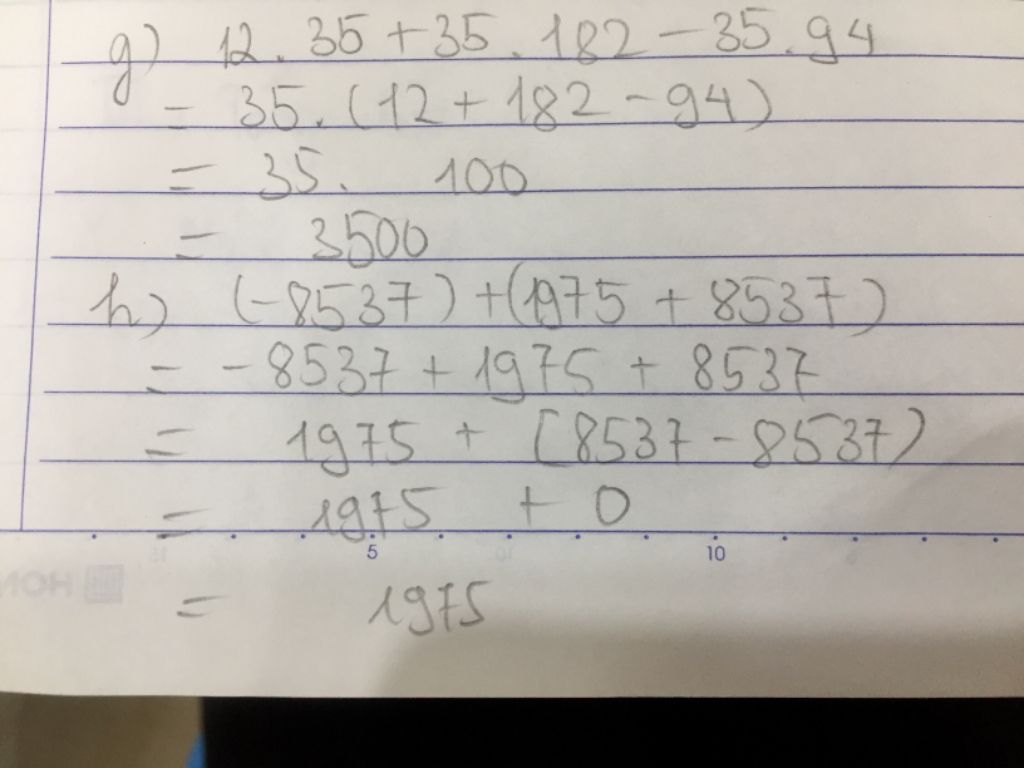 g) 12. 35 + 35. 182 - 35. 94
= 35. (12 + 182 - 94)
= 35. 100
= 3500
h) (-8537) + (1975 + 8537)
= -8537 + 1975 + 8537
= 1975 + [8537 - 8537)
= 1975 + 0
5 10
= 1975